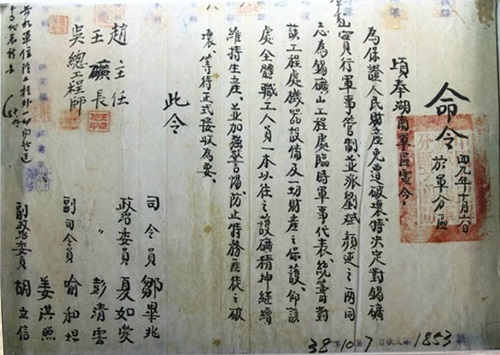 命令
四九年十月六日
於軍分區
頃奉湖南軍區電令：
為保證人民財產免遭破壞特決定對錫礦
山實行軍事管制並派劉斌顏述之兩同
志為錫礦山工程處臨時軍事代表統籌對
該工程處機器設備及一切財產之保護。仰該
處全體職工人員一本以往之護礦精神繼續
維持生產。並加強警備防止特務匪徒之破
壞，等待正式接收為要。
此令
趙主任
王礦長
吳總工程師
司令員 鄒畢兆
政治委員 夏如愛
〃 彭清雲
副司令員 喻和坦
姜洪照
副政治委員 胡立信
38年10月7日 1853